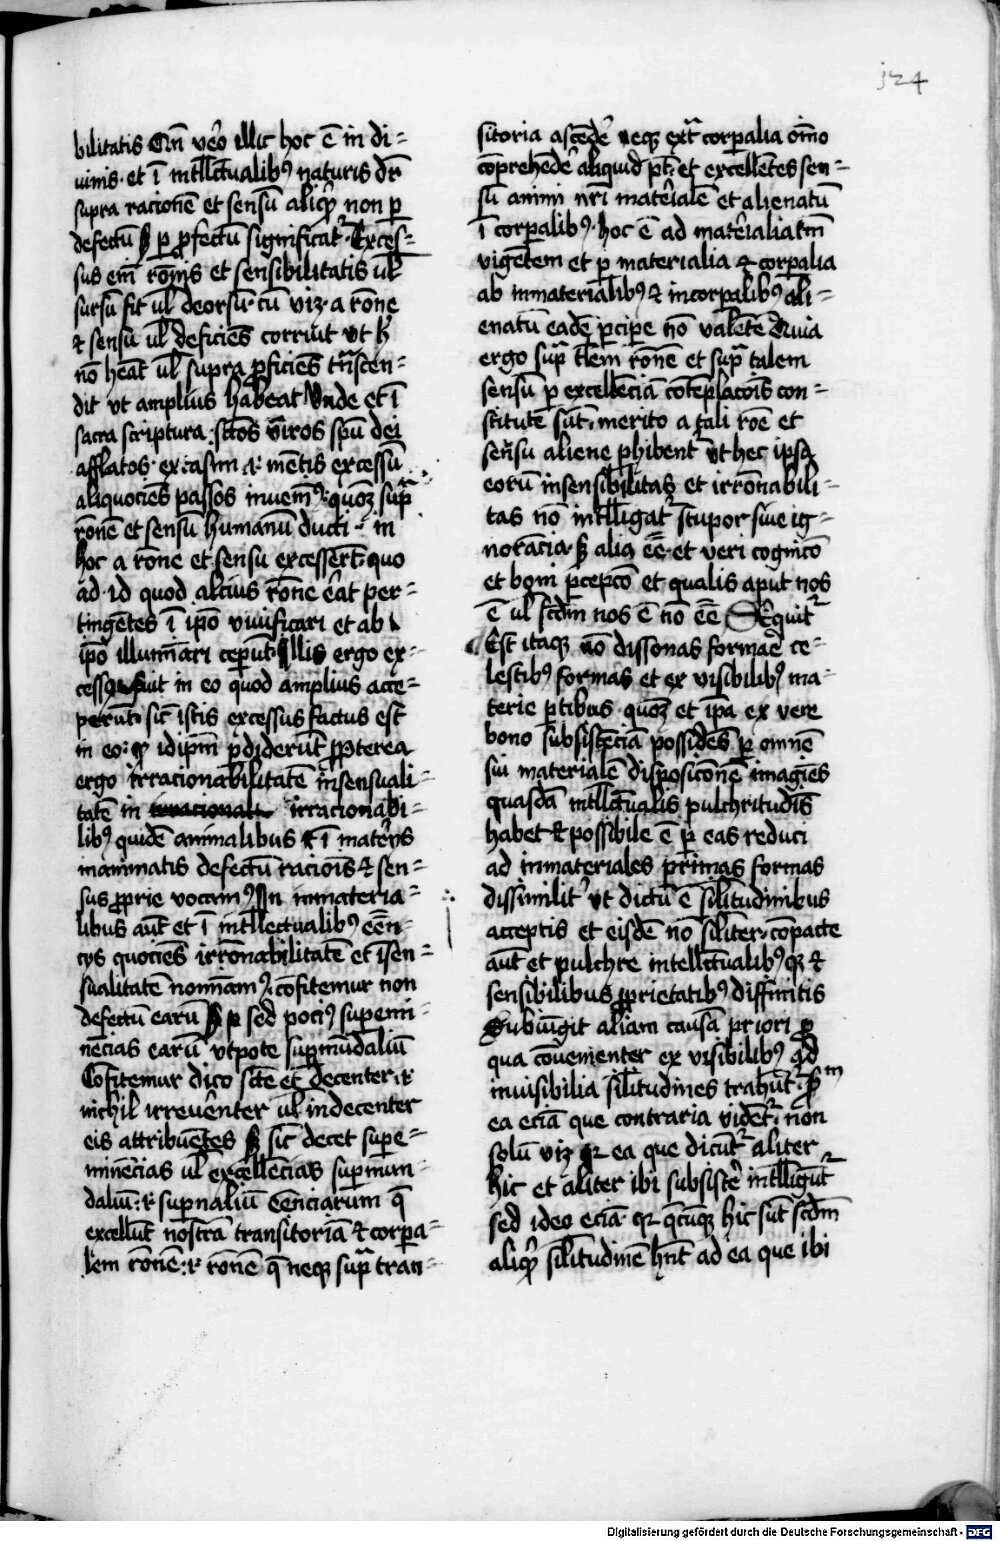 124
bilitatis Qn̄ ūo illic hoc ē in di-
uinis et ī intll̄ctualibꝰ naturis dr̄
supra racionē et sensū aliqͥd non ꝑ
defectū sꝫ ꝑ ꝓfectū significat᷑ Exces-
sus em̄ rōnis et sensibilitatis ul̄
sursū fit ul̄ deorsū cū viꝫ a rōne
⁊ sensu ul̄ deficiēs corruit vt
nō heāt ul̄ supra ꝓficiēs tn̄scen-
dit vt amplius habeat Vnde et ī
sacra scriptura sc̄os viros spū dei
afflatos extasim .i. mētis excessū
aliquociēs passos inuenimꝰ quoꝫ supͣ
rōnē et sensū humanū ducti in
hoc a rōne et sensu excesserūt quo
ad id quod alcius rōne erat per-
tingētes ī ip̄o viuificari et ab
ip̄o illumīari ceperūt Illis ergo ex-
cessꝰ fuit in eo quod amplius acce-
perūt sic istis excessus factus est
in eo qꝫ id ip̄m ꝑdiderūt ꝓpterea
ergo irracionabilitatē insensuali-
tatē in irracionabi-
libꝰ quidē animalibus ⁊ ī materijs
inanimatis defectū racōis ⁊ sen-
sus ꝓprie vocamꝰ In inmateria-
libus aūt et ī intll̄ectualibꝰ eēn-
cijs quociēs irrōnabilitatē et īsen-
sualitatē noīamꝰ cōfitemur non
defectū earū sed pociꝰ superemi-
nēcias earū vtpote suꝑmūdaliū
Cōfitemur dico sc̄te et decenter ⁊
nichil irreuēnter ul̄ indecenter
eis attribuētes sꝫ sic decet supe-
minēcias ul̄ excellēcias suꝑmun-
daliū ⁊ suꝑnaliū eēnciarum q̄
excellūt nostrā transitoriā ⁊ corꝑa-
lem rōnē ⁊ rōnē q̄ neqꝫ supͣ tran-
sitoria ascēdē neqꝫ extͣ corꝑalia om̄o
cōprehēdē aliquid pt̄ et excellētes sen-
sū animi nr̄i materialē et alienatū
ī corꝑalibꝰ hoc ē ad materialia tm̄
vigētem et ꝑ materialia ⁊ corꝑalia
ab inmaterialibꝰ ⁊ incorꝑalibꝰ ali-
enatū eadē ꝑcipe nō valētē Quia
ergo supͣ tl̄em rōnē et supͣ talem
sensū ꝑ excellēciā cōtēplacōis con-
stitute sūt merito a tali rōe et
sensu aliene ꝓhibent᷑ vt hec ipsa
eorū insensibilitas et irrōnabili-
tas nō intlligat᷑ stupor siue ig-
norācia sꝫ aliqͣ eē et veri cognicō
et boni ꝑcepcō et qualis aput nos
ē ul̄ scd̄m nos ē nō eē Seqūit᷑
Est itaqꝫ nō dissonas formae ce-
lestibꝰ formas et ex visibilibꝰ ma-
terie ꝑtibus quoꝫ et ip̄a ex vere
bono subsistēciā possidēs ꝑ omnē
sui materialē disposicōnē imagīes
quasdā intll̄ctualis pulchritudīs
habet Et possibile ē ꝑ eas reduci
ad inmateriales primas formas
dissimilit᷑ vt dictū ē sil̄itudinibus
acceptis et eisdē nō sil̄iter cōpacte
aūt et pulchre intellectualibꝰ qꝫ ⁊
sensibilibus ꝓprietatibꝰ diffinitis
Subiūgit aliam causā priori ꝓ
qua cōuenienter ex visibilibꝰ ad
inuisibilia sil̄itudines trahūt᷑
ea eciā que contraria vident᷑ non
solū viꝫ qꝛ ea que dicūt᷑ aliter
hic et aliter ibi subsistē intlligūt᷑
sed ideo eciā qꝛ q̄cūqꝫ hic sūt scd̄m
aliqͥd sil̄itudinē hn̄t ad ea que ibi
Digitalisierung gefördert durch die Deutsche Forschungsgemeinschaft - DFG